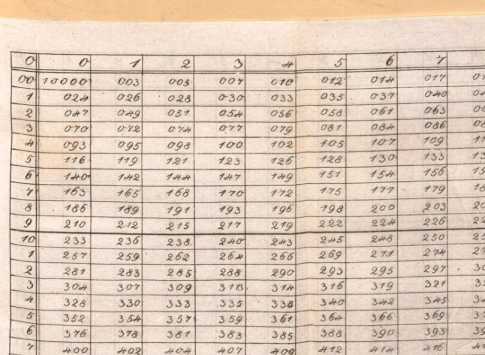 0 0 1 2 3 4 5 6 7
00 10000 003 005 007 010 012 014 017
1 024 026 028 030 033 035 037 040
2 047 049 051 054 056 058 061 063
3 070 072 074 077 079 081 084 086
4 093 095 098 100 102 105 107 109
5 116 119 121 123 126 128 130 133
6 140 142 144 147 149 151 154 156
7 163 165 168 170 172 175 177 179
8 186 189 191 193 196 198 200 203
9 210 212 215 217 219 222 224 226
10 233 236 238 240 243 245 248 250
1 257 259 262 264 266 269 271 274
2 281 283 285 288 290 293 295 297
3 304 307 309 314 316 319 321
4 328 330 333 335 338 340 342 345
5 352 354 357 359 361 364 366 369
6 376 378 381 383 385 388 390 393
7 400 402 404 407 409 412 414 416